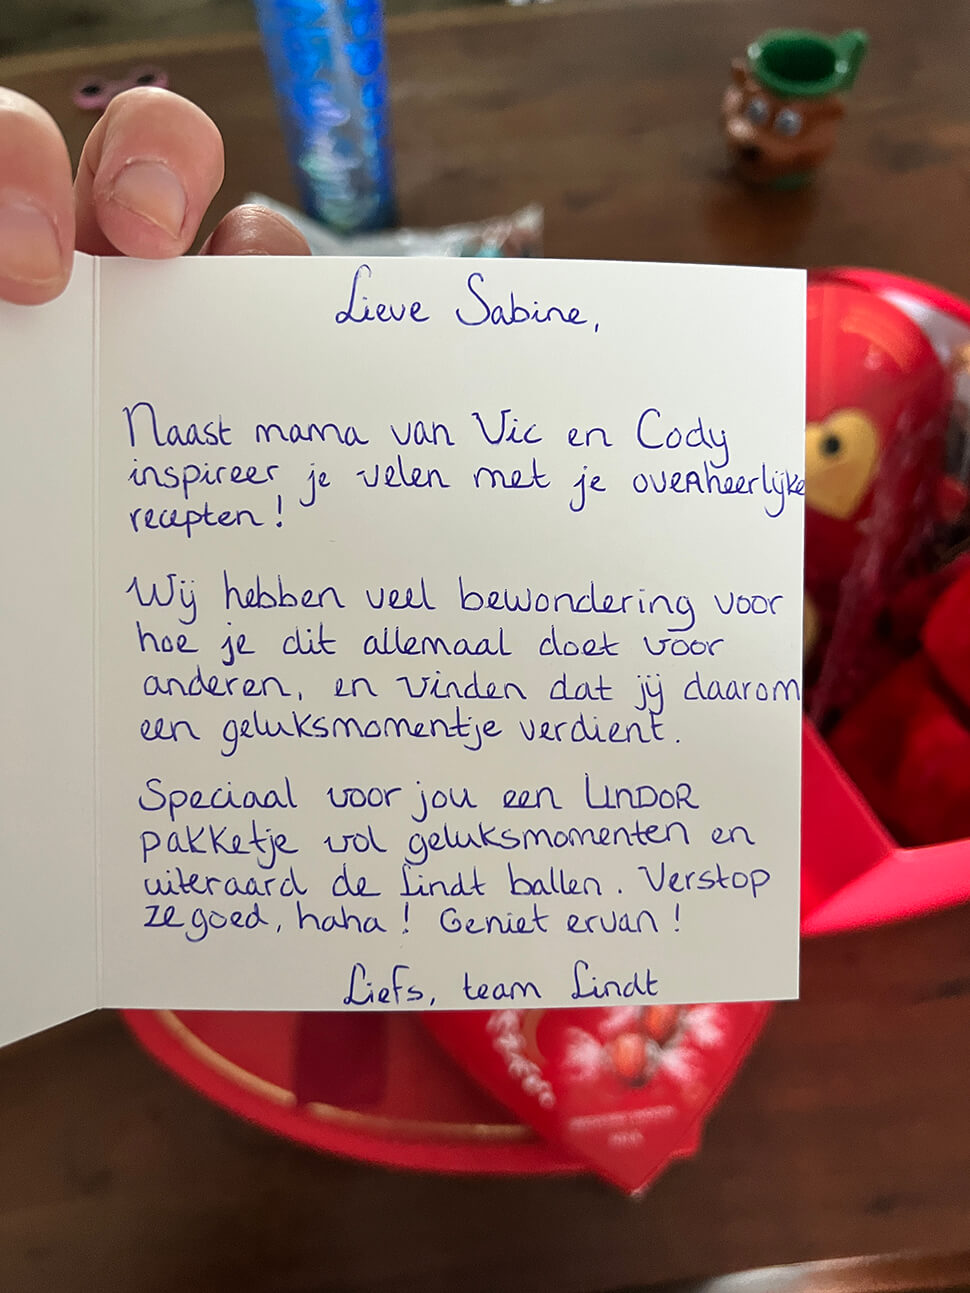 Lieve Sabine,
Naast mama van Vic en Cody
inspireer je velen met je overheerlijke
recepten!
Wij hebben veel bewondering voor
hoe je dit allemaal doet voor
anderen, en vinden dat jij daarom
een geluksmomentje verdient.
Speciaal voor jou een LINDOR
pakketje vol geluksmomenten en
uiteraard de Lindt ballen. Verstop
ze goed, haha! Geniet ervan!
Liefs, team Lindt